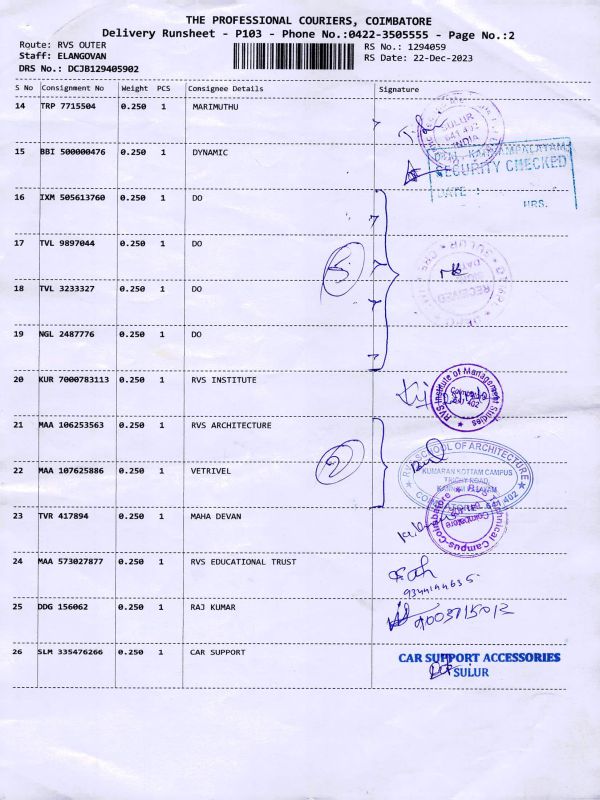 THE PROFESSIONAL COURIERS, COIMBATORE
Delivery Runsheet - P103 - Phone No.:0422-3505555 - Page No.:2
Route: RVS OUTER RS No.: 1294059
Staff: ELANGOVAN RS Date: 22-Dec-2023
DRS No.: DCJB129405902
S No Consignment No Weight PCS Consignee Details Signature
14 TRP 7715504 0.250 1 MARIMUTHU
SULUR
641 402
INDIA
15 BBI 500000476 0.250 1 DYNAMIC
SECURITY CHECKED
DATE :
HRS.
16 IXM 505613760 0.250 1 DO
17 TVL 9897044 0.250 1 DO
5
SULUR
RECEIVED
18 TVL 3233327 0.250 1 DO
19 NGL 2487776 0.250 1 DO
20 KUR 7000783113 0.250 1 RVS INSTITUTE
RVS Institute of Management Studies
21 MAA 106253563 0.250 1 RVS ARCHITECTURE
RVS SCHOOL OF ARCHITECTURE
KUMARAN KOTTAM CAMPUS
TRICHY ROAD,
KANNAMPALAYAM
COIMBATORE 641 402
22 MAA 107625886 0.250 1 VETRIVEL
2
23 TVR 417894 0.250 1 MAHA DEVAN
RVS Technical Campus-Coimbatore
24 MAA 573027877 0.250 1 RVS EDUCATIONAL TRUST
9344144635
25 DDG 156062 0.250 1 RAJ KUMAR
26 SLM 335476266 0.250 1 CAR SUPPORT
CAR SUPPORT ACCESSORIES
SULUR